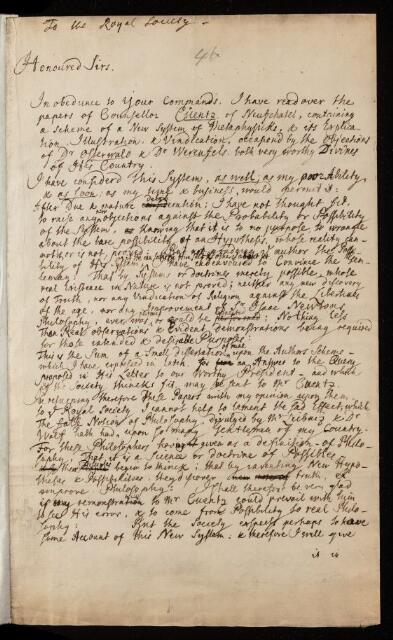 To the Royal Society.
46
Honoured Sirs.
In obedience to Your Commands. I have read over the
papers of Counsellor Cuentz of Neufchatel, containing
a scheme of a New System of Metaphysicks, & its Explica
tion, Illustration, & Vindication, occasond by the Objections
of Dr Osterwald & Dr Werenfels. both very worthy Divines
of His Country.
I have considerd this System, as well, as my poor Ability,
& as soon, as my time & business, would permit it:
After Due & mature deliberation; I have not thought fit,
to raise any objections against the Probability or Possibility
of the System, knowing that it is to no purpose to wrangle
about the bare possibility of an Hypothesis, whose reality can
not be is not prov'd
bility of His have endeavoured to Convince the Gen
tleman, That by Systems or doctrines merely possible, whose
real Existence in Nature is not proved; neither any new discovery
of Truth, nor any Vindication of Religion against the Libertins
of the age, nor any Improvement of Sr Isaac Newtons
Philosophy, ever was, or could be Nothing less
than Real observations & Evident demonstrations being required
for those intended & desirable Purposes:
This is the Sum of a Small Dissertation upon the Authors Scheme
which I have expressed in Latin, for an Answer to the Query
proposed in His Letter to our Worthy President and which
if the Society thinks fit, may be sent to Mr Cuentz.
In returning therefore These Papers with my opinion upon them,
to ye Royal Society, I cannot help to lament the sad Effect, which
The false Notion of Philosophy, divulged by Mr Leibniz & Dr
Wolf hath had, upon so many Gentlemen of my Country.
For these Philosophers having given as a definition of Philo
sophy, That it is a Science or Doctrine of Possibles
They begun to think; that by inventing New Hypo
theses & Possibilities, they discover truth, &
improve Philosophy: I shall therefore be very glad
if my remonstration to Mr Cuentz could prevail with him
to see His error, & to come from Possibility to real Philo
sophy: But the Society expects perhaps to have
some Account of this New System: & therefore I will give
it in